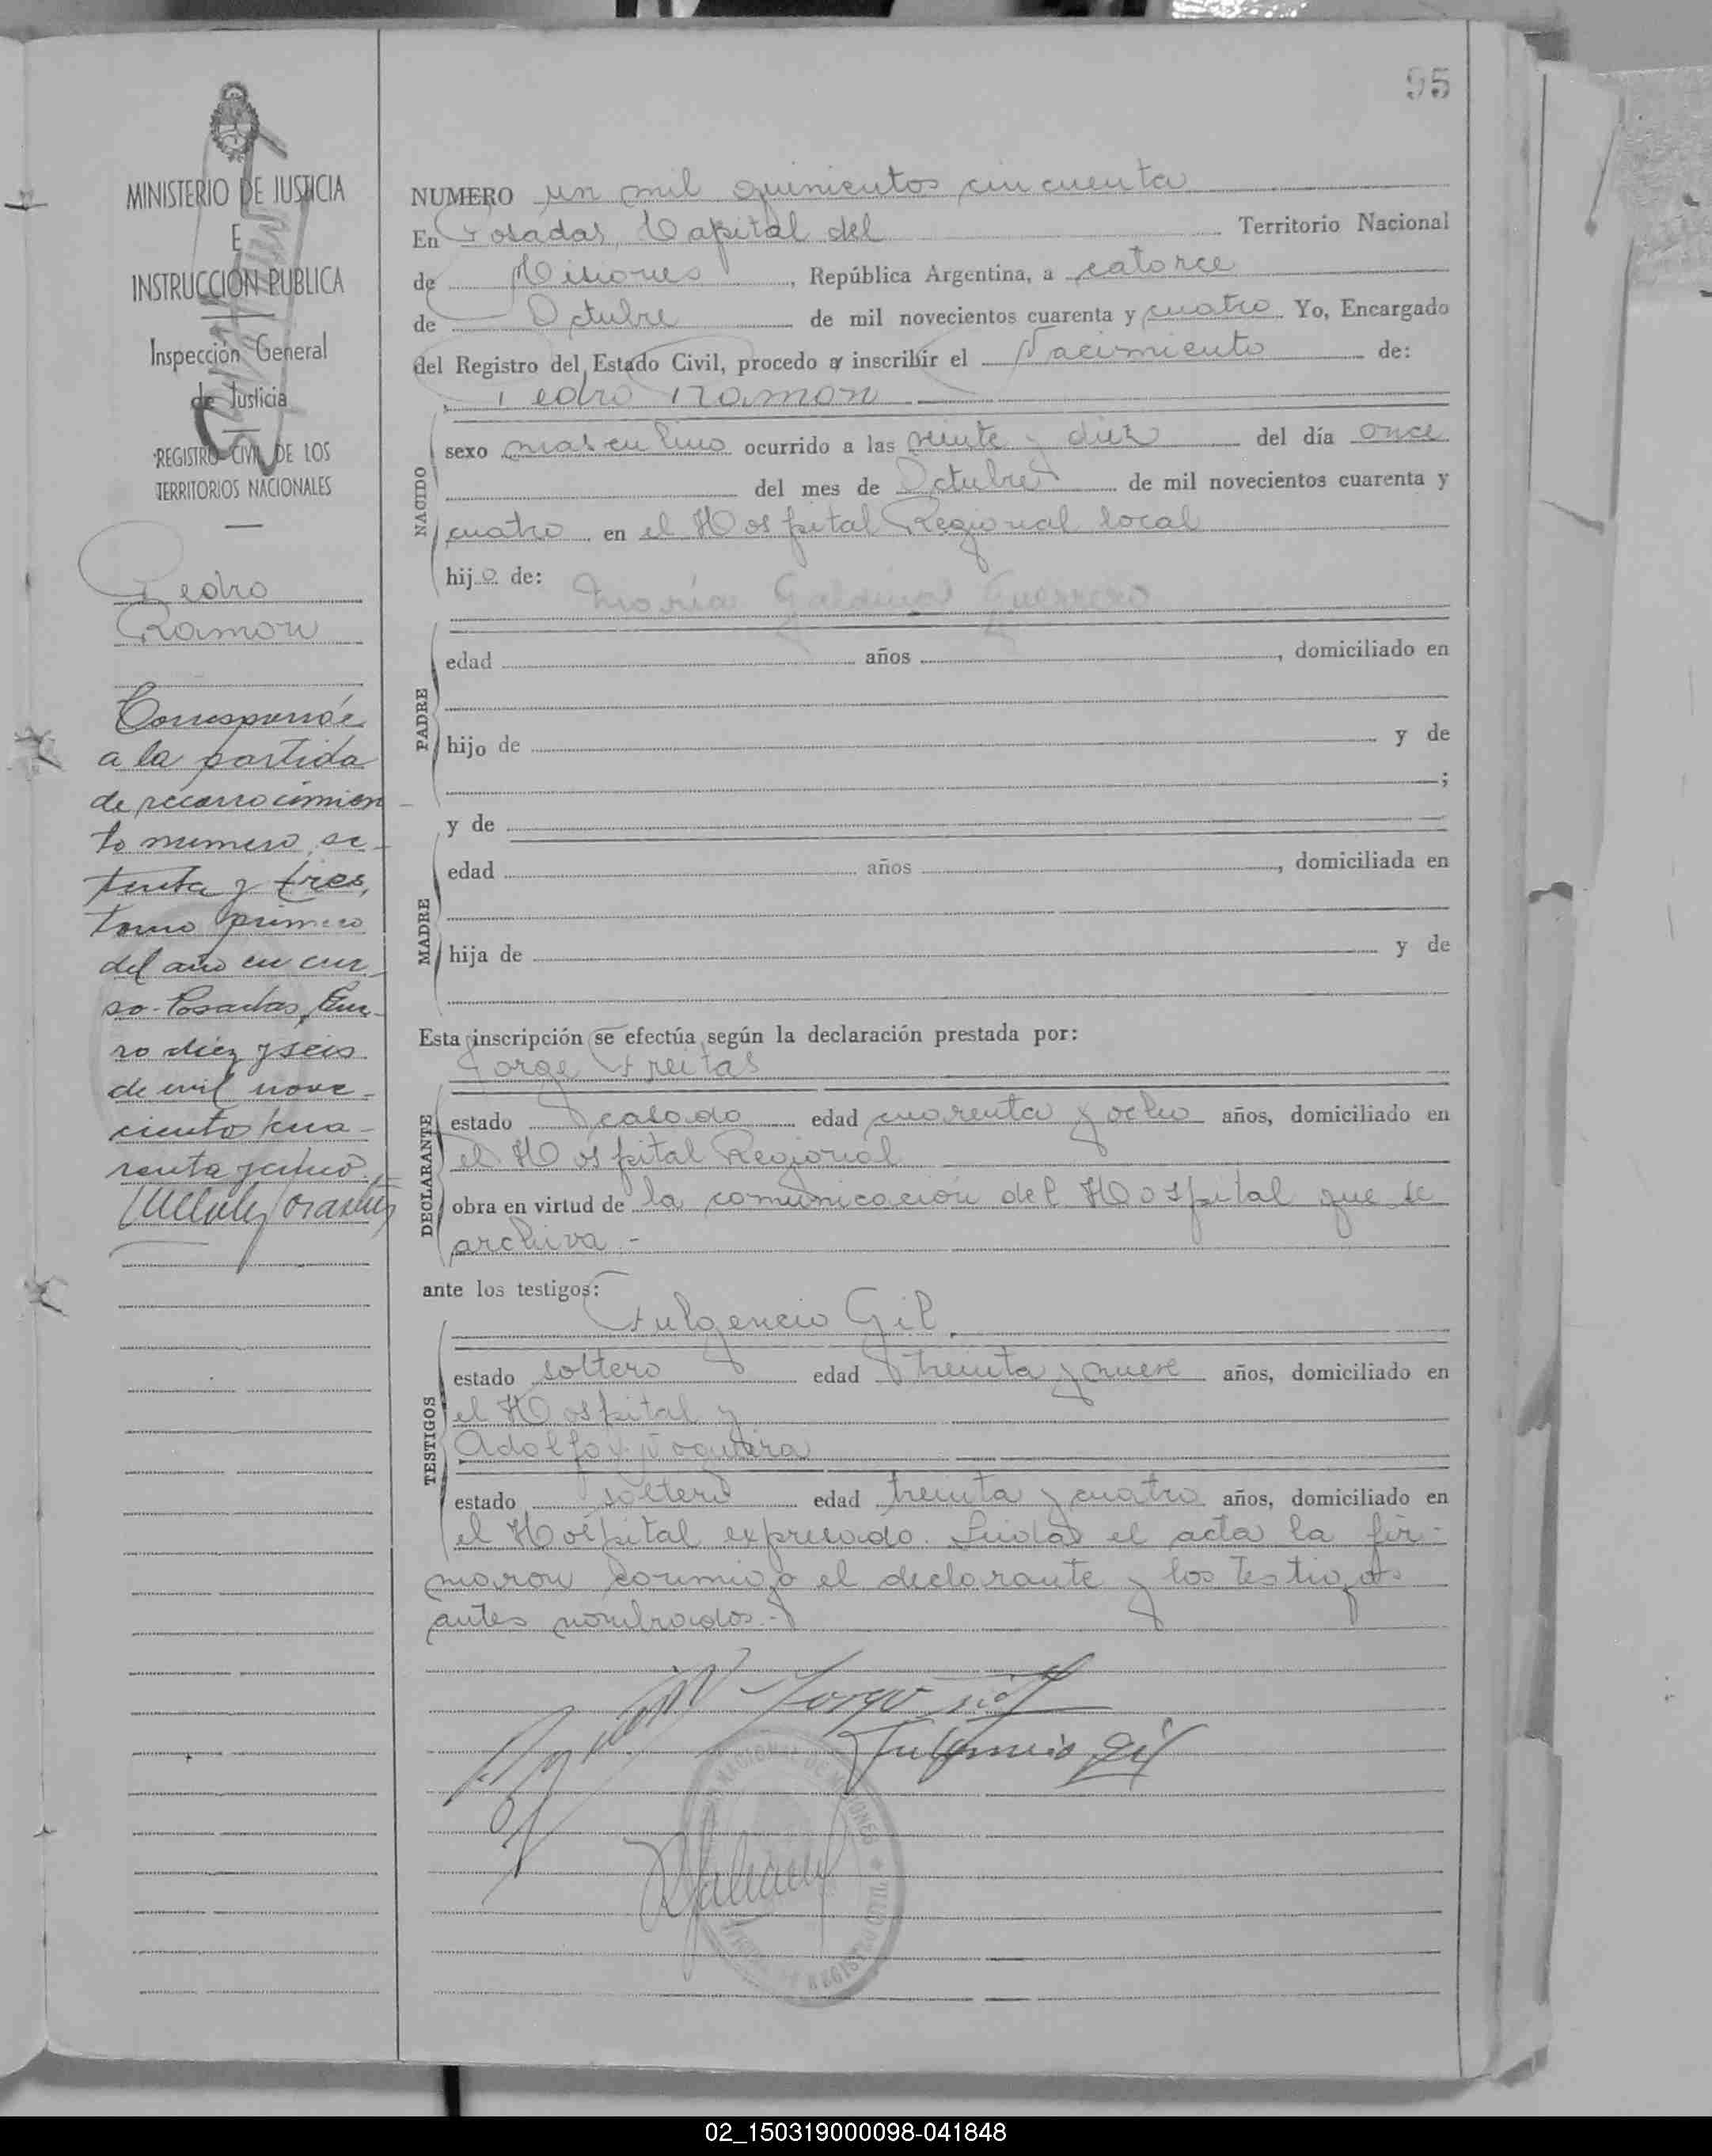 95
MINISTERIO DE JUSTICIA
E
INSTRUCCIÓN PUBLICA
Inspección General
de Justicia
REGISTRO CIVIL DE LOS
TERRITORIOS NACIONALES
Pedro
Ramon
Corresponde
a la partida
de reconocimien
to numero se-
tenta y tres,
tomo primero
del año en cur-
so. Posadas, Ene-
ro diez y seis
de mil nove-
cientos cua-
renta y cinco
NUMERO un mil quinientos cincuenta
En Posadas, Capital del Territorio Nacional
de Misiones, República Argentina, a catorce
de Octubre de mil novecientos cuarenta y cuatro Yo, Encargado
del Registro del Estado Civil, procedo a inscribir el Nacimiento de:
Pedro Ramon
NACIDO
sexo masculino ocurrido a las veinte y diez del día once
del mes de Octubre de mil novecientos cuarenta y
cuatro en el Hospital Regional local
hijo de: María Guerrero
PADRE
edad años , domiciliado en
hijo de y de
;
y de
MADRE
edad años , domiciliada en
hija de y de
Esta inscripción se efectúa según la declaración prestada por:
Jorge Freitas
DECLARANTE
estado casado edad cuarenta y ocho años, domiciliado en
el Hospital Regional
obra en virtud de la comunicación del Hospital que se
archiva.-
ante los testigos:
Fulgencio Gil
TESTIGOS
estado soltero edad treinta y nueve años, domiciliado en
el Hospital y
Adolfo Noguera
estado soltero edad treinta y cuatro años, domiciliado en
el Hospital expresado. Leida el acta la fir-
maron conmigo el declarante y los testigos
antes nombrados.-
Fulgencio Gil
02_150319000098-041848